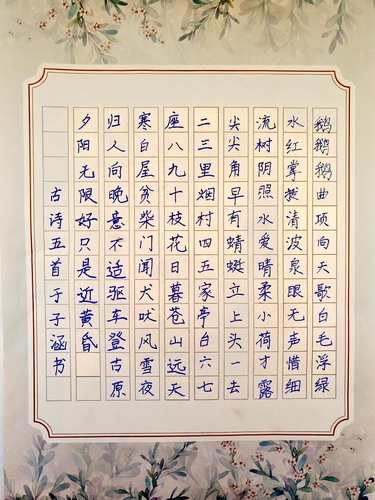 鹅鹅鹅曲项向天歌白毛浮绿
水红掌拨清波泉眼无声惜细
流树阴照水爱晴柔小荷才露
尖尖角早有蜻蜓立上头一去
二三里烟村四五家亭台六七
座八九十枝花日暮苍山远天
寒白屋贫柴门闻犬吠风雪夜
归人向晚意不适驱车登古原
夕阳无限好只是近黄昏
古诗五首于子涵书